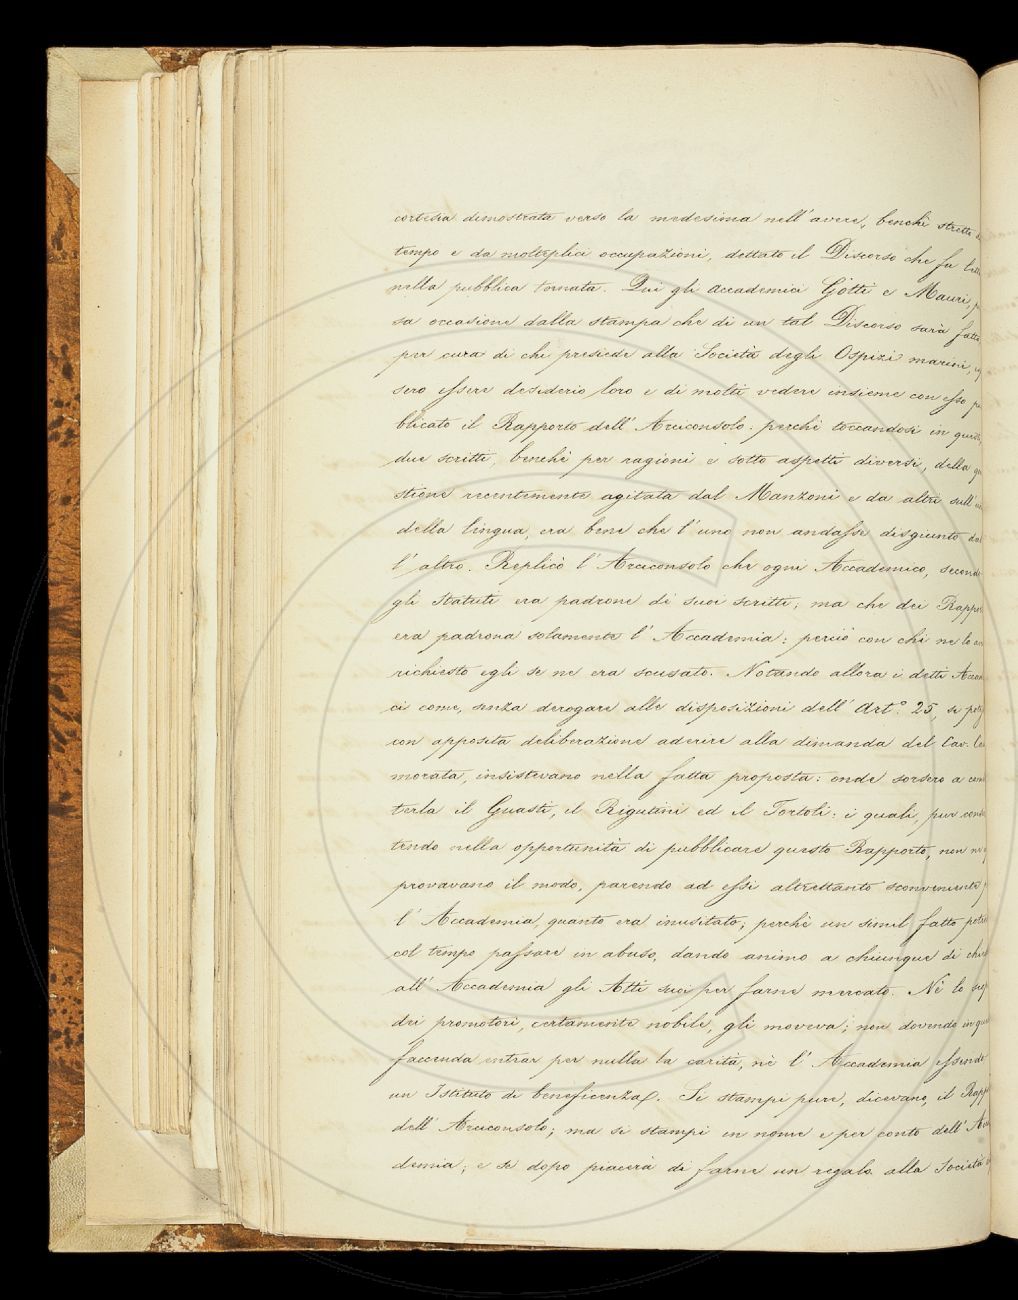 cortesia dimostrata verso la medesima nell'avere, benchè stretto
tempo e da molteplici occupazioni, dettato il Discorso che fu
nella pubblica tornata. Qui gli accademici Gotti e Mauri,
sa occasione dalla stampa che di un tal Discorso sarà fatta
per cura di chi presiede alla Società degli Ospizi marini,
sero essere desiderio loro e di molti vedere insieme con esso
blicato il Rapporto dell'Arciconsolo: perchè toccandosi in questi
due scritti, benchè per ragioni e sotto aspetti diversi, della
stione recentemente agitata dal Manzoni e da altri sull'
della lingua, era bene che l'uno non andasse disgiunto
l'altro. Replicò l'Arciconsolo che ogni Accademico, secondo
gli Statuti era padrone di suoi scritti; ma che dei
era padrona solamente l'Accademia: perciò con chi ne lo
richiesto egli se ne era scusato. Notando allora i detti
ci come, senza derogare alle disposizioni dell'Art.° 25, si
con apposita deliberazione aderire alla dimanda del Cav.
morata, insistevano nella fatta proposta: onde sorsero a
terla il Guasti, il Rigutini ed il Tortoli: i quali, pur
tendo nella opportunità di pubblicare questo Rapporto, non
provavano il modo, parendo ad essi altrettanto sconveniente
l'Accademia, quanto era inusitato; perchè un simil fatto
col tempo passare in abuso, dando animo a chiunque di
all'Accademia gli Atti suoi per farne mercato. Nè lo
dei promotori, certamente nobile, gli moveva; non dovendo in
faccenda entrar per nulla la carità, nè l'Accademia essendo
un Istituto di beneficenza. Si stampi pure, dicevano, il
dell'Arciconsolo; ma si stampi in nome e per conto dell'
demia; e se dopo piacerà di farne un regalo alla Società